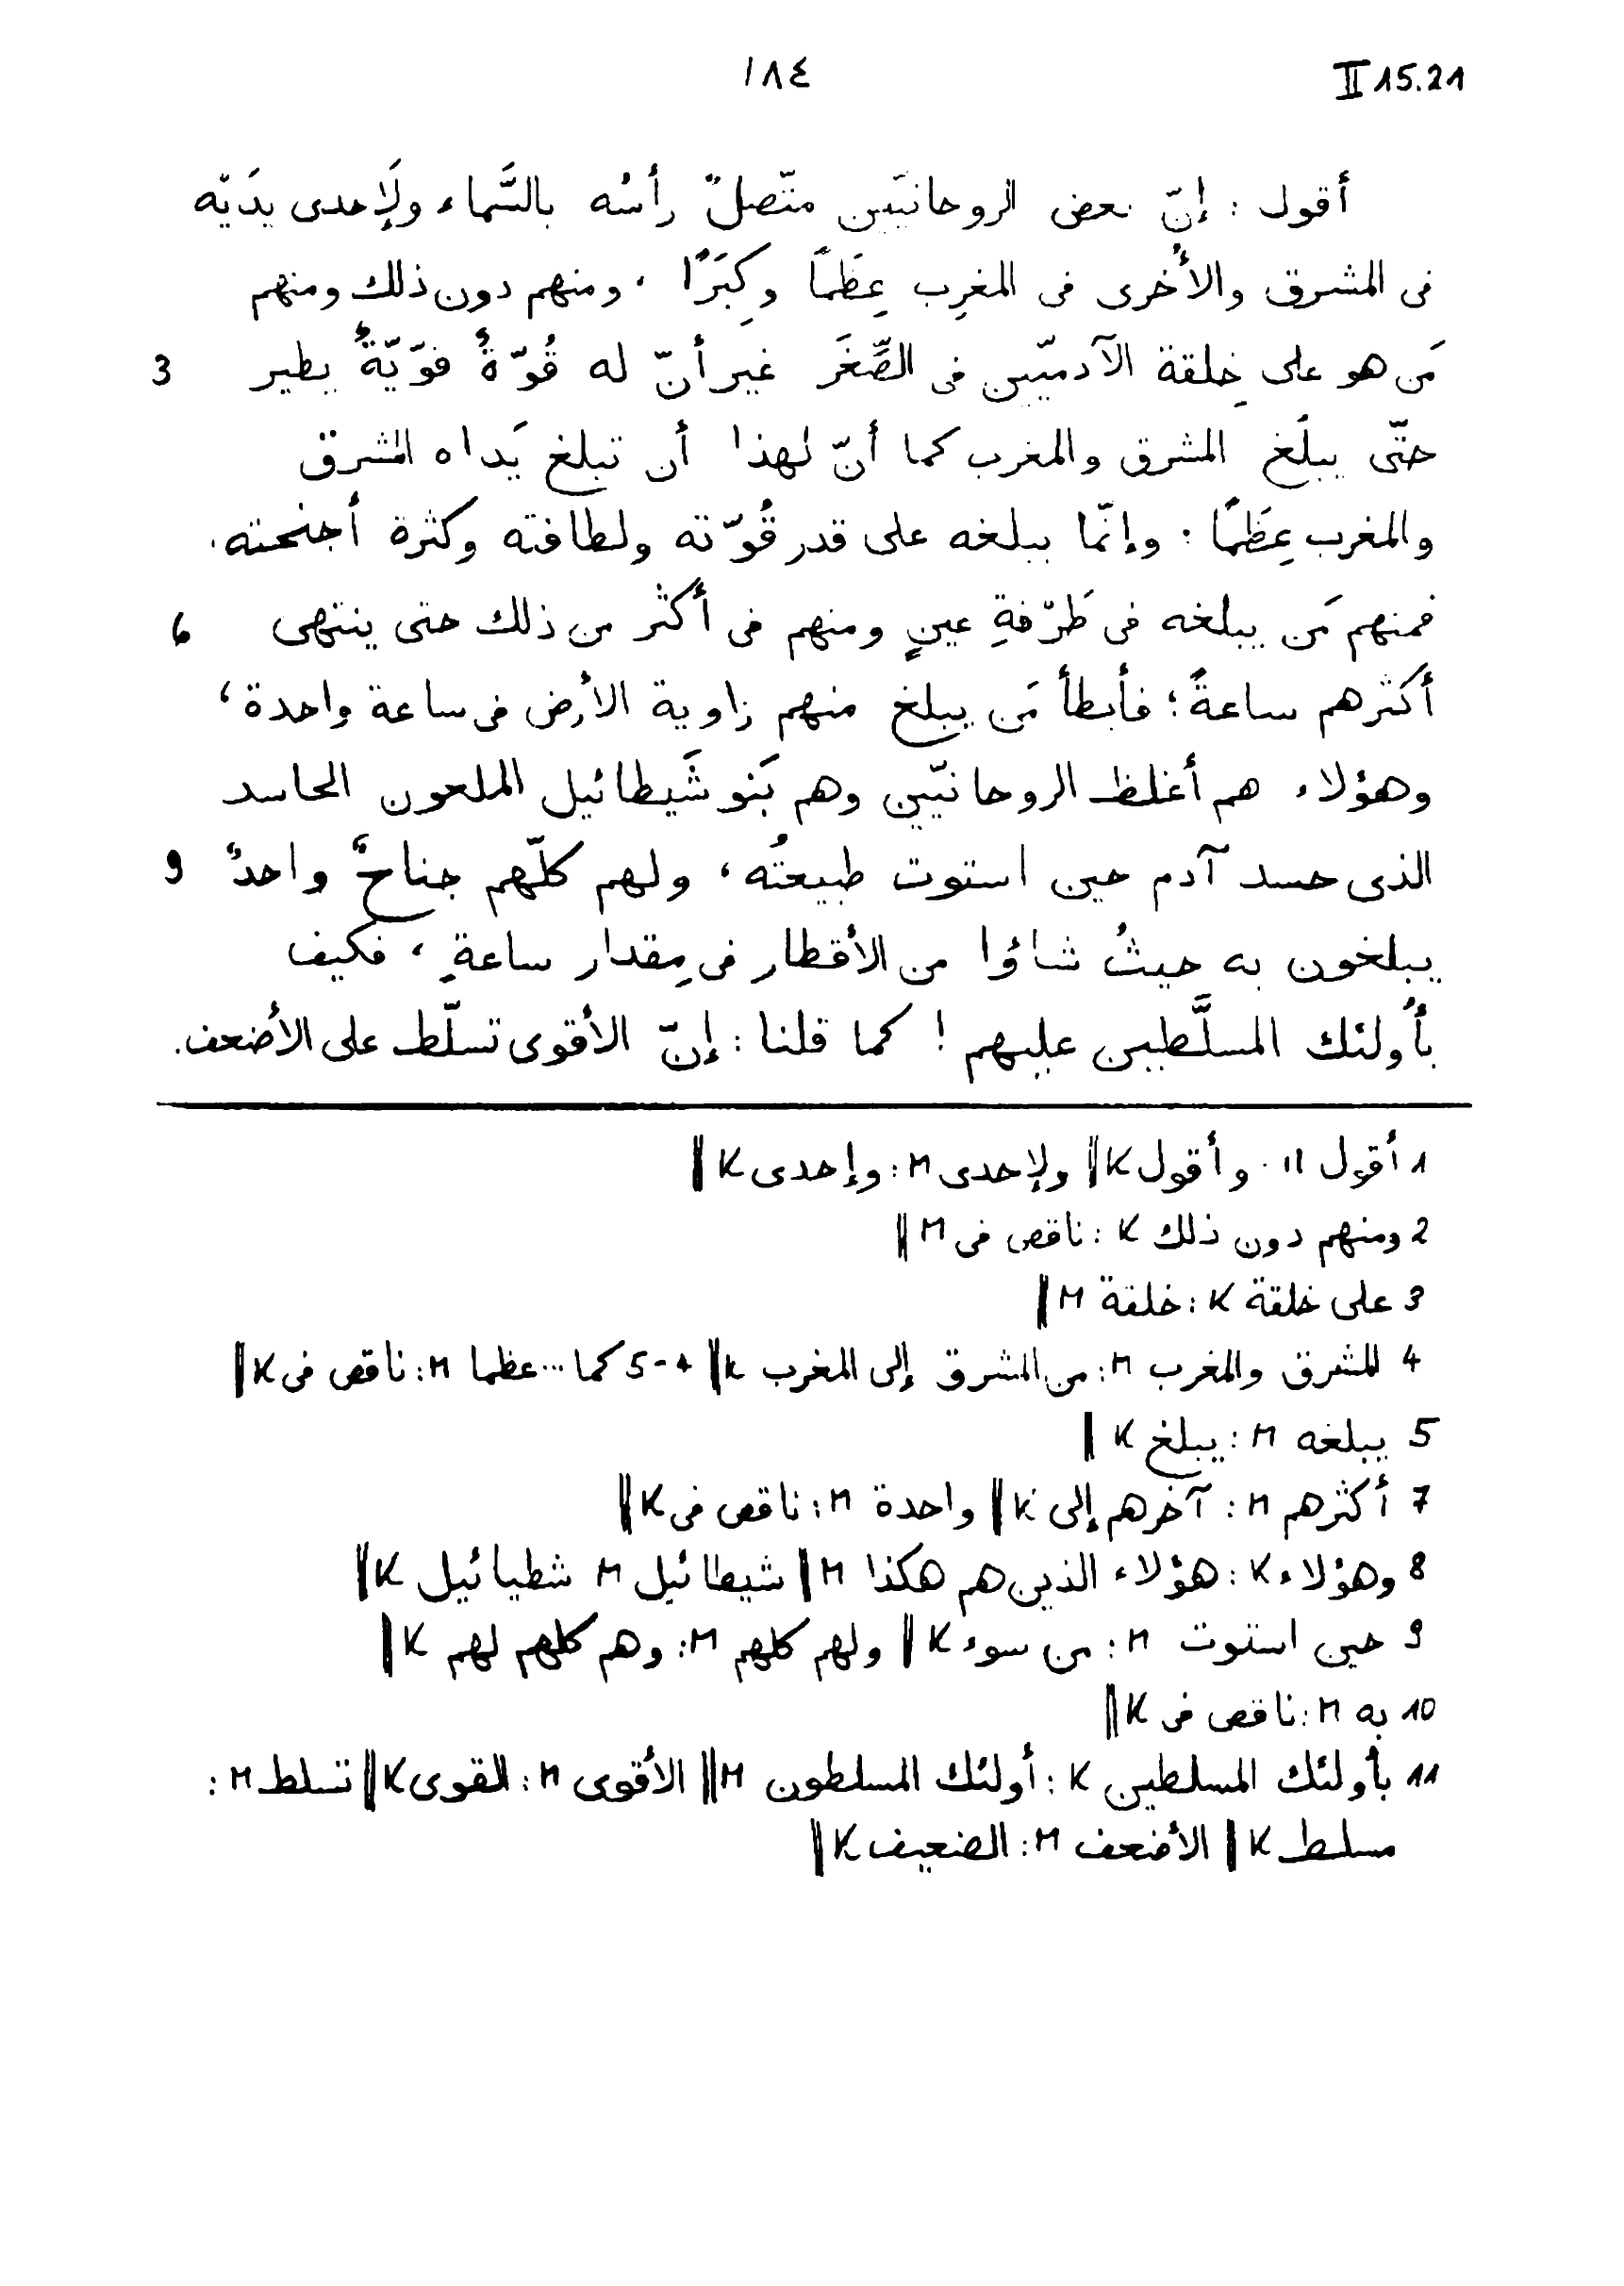 ١٨٤
II 15.21
أقول : إنّ بعض الروحانيّين متّصلٌ رأسُه بالسَّماء ولَإحدى يدَيْه
فى المشرق والأُخرى فى المغرِب عِظَمًا وكِبَرًا ، ومنهم دون ذلك ومنهم
مَن هو على خِلقة الآدميّين فى الصِّغَر غير أنّ له قُوّةً قوّيّةً يطير 3
حتّى يبلَغ المشرق والمغرب كما أنّ لهذا أن تبلغ يَداه المشرق
والمغرب عِظَمًا : وإنّما يبلغه على قدر قُوّته ولطافته وكثرة أجنحته.
فمنهم مَن يبلغه فى طَرْفةِ عينٍ ومنهم فى أكثر من ذلك حتى ينتهى 6
أكثرهم ساعةً ؛ فأبطأ مَن يبلغ منهم زاوية الأرض فى ساعة واحدة ،
وهؤلاء هم أغلظ الروحانيّين وهم بَنو شَيطائيل الملعون الحاسد
الذى حسد آدم حين استوت طبيعتُه ، ولهم كلّهم جناحٌ واحدٌ 9
يبلغون به حيثُ شاؤا من الأقطار فى مِقدار ساعةٍ ، فكيف
بأُولئك المسلَّطين عليهم ! كما قلنا : إنّ الأقوى تسلّط على الأضعف.
1 أقول M : وأقول K || ولإحدى M : وإحدى K ||
2 ومنهم دون ذلك K : ناقص فى M ||
3 على خلقة K : خلقة M ||
4 المشرق والمغرب M : من المشرق إلى المغرب K || 4-5 كما ... عظما M : ناقص فى K ||
5 يبلغه M : يبلغ K ||
7 أكثرهم M : آخرهم إلى K || واحدة M : ناقص فى K ||
8 وهؤلاء K : هؤلاء الذين هم هكذا M || شيطائيل M شطيائيل K ||
9 حين استوت M : من سوء K || ولهم كلهم M : وهم كلهم لهم K ||
10 به M : ناقص فى K ||
11 بأولئك المسلطين K : أولئك المسلطون M || الأقوى M : القوى K || تسلط M :
مسلط K || الأضعف M : الضعيف K ||